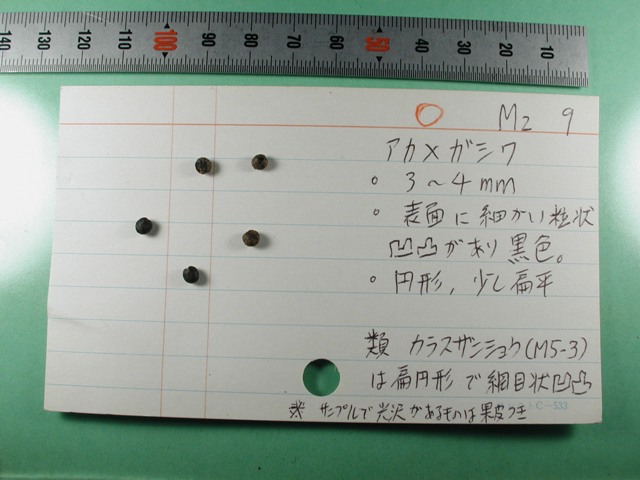 140 130 120 110 100 90 80 70 60 50 40 30 20 10
M2 9
アカメガシワ
。3~4mm
。表面に細かい粒状
凹凸があり黒色。
。円形,少し扁平
類 カラスザンショウ(M5-3)
は扁円形で網目状凹凸
※ サンプルで光沢があるものは果皮つき
C-533